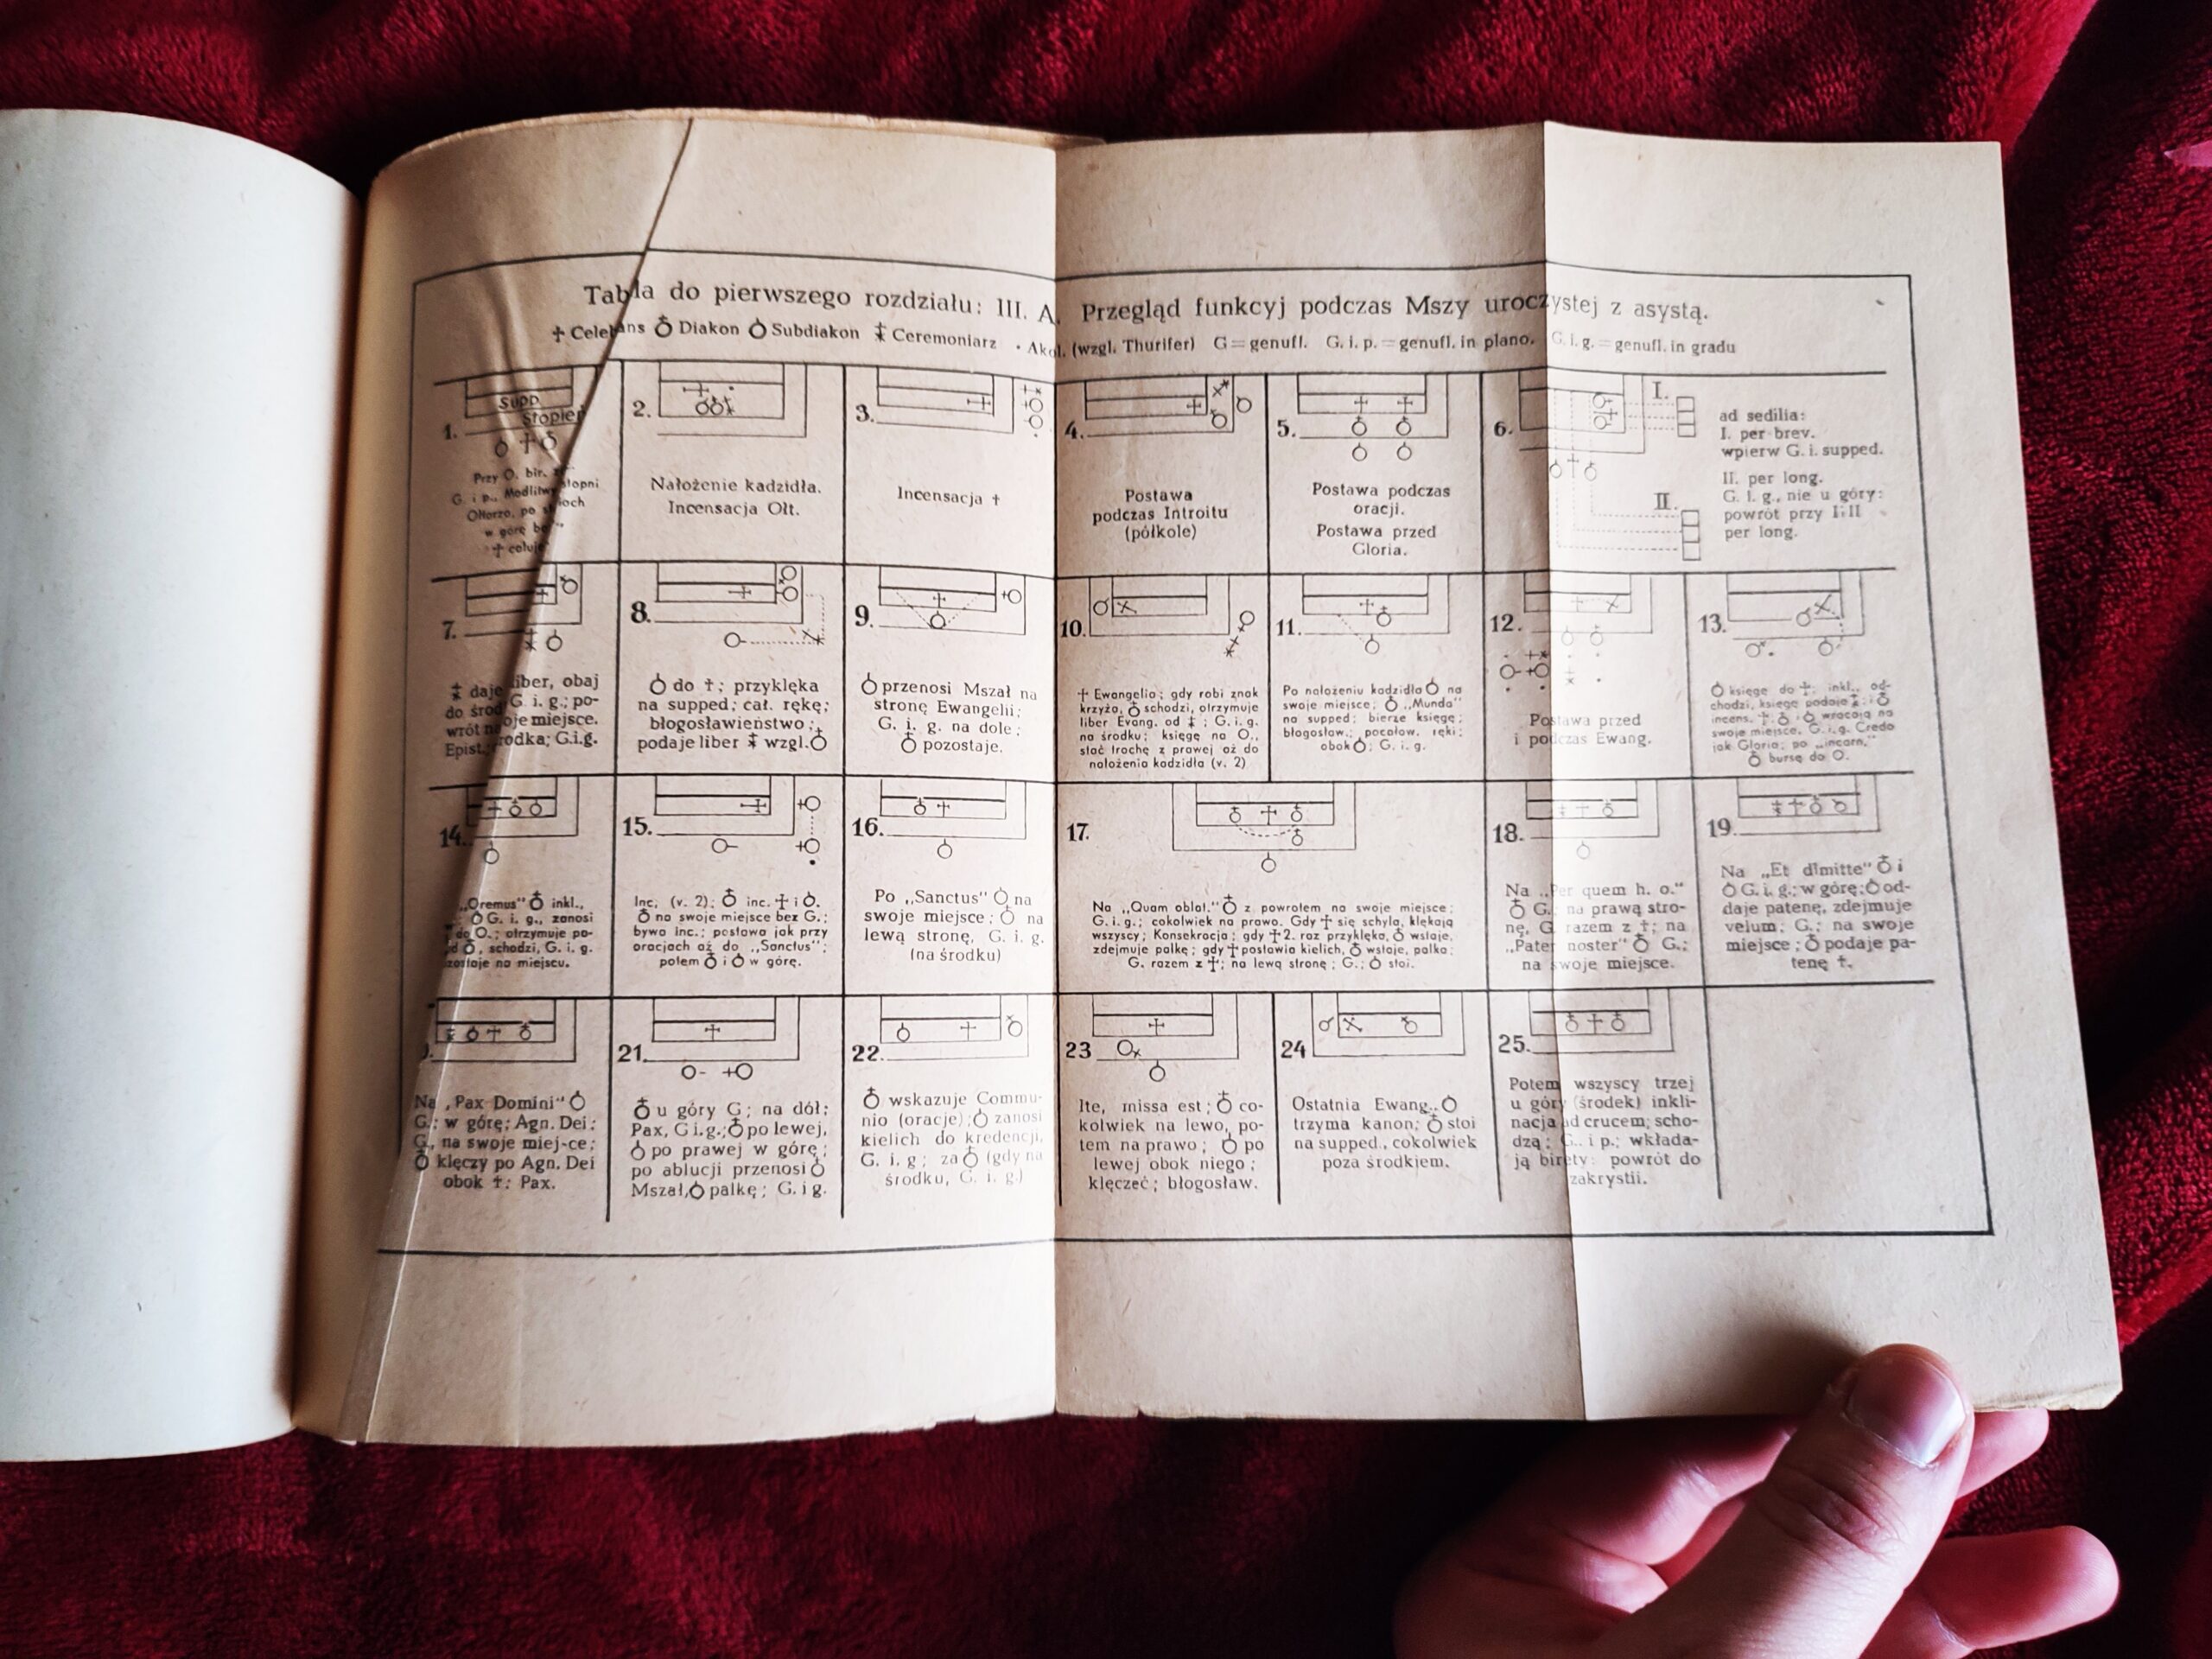 Tabla do pierwszego rozdziału: III. A. Przegląd funkcyj podczas Mszy uroczystej z asystą.
✝ Celebrans ♁ Diakon ⍜ Subdiakon ‡ Ceremoniarz • Akol. (wzgl. Thurifer) G = genufl. G. i. p. = genufl. in plano. G. i. g. = genufl. in gradu
1.
Supp.
Stopień
G. i p., Modlitwy
w górę
2.
Nałożenie kadzidła.
Incensacja Ołt.
3.
Incensacja ✝
4.
Postawa
podczas Introitu
(półkole)
5.
Postawa podczas
oracji.
Postawa przed
Gloria.
6.
I.
II.
ad sedilia:
I. per brev.
wpierw G. i. supped.
II. per long.
G. i. g., nie u góry:
powrót przy I i II
per long.
7.
‡ daje liber, obaj
do środ G. i. g.; po-
wrót na swoje miejsce.
Epist.; środka; G.i.g.
8.
⍜ do ✝; przyklęka
na supped; cał. rękę;
błogosławieństwo;
podaje liber ‡ wzgl. ♁
9.
⍜ przenosi Mszał na
stronę Ewangelii;
G. i. g. na dole;
♁ pozostaje.
10.
✝ Ewangelia; gdy robi znak
krzyża, ♁ schodzi, otrzymuje
liber Evang. od ‡; G. i. g.
na środku; księgę na O.,
stać trochę z prawej aż do
nałożenia kadzidła (v. 2)
11.
Po nałożeniu kadzidła ⍜ na
swoje miejsce; ♁ „Munda"
na supped; bierze księgę;
błogosław.; pocałow. ręki;
obok ⍜; G. i. g.
12.
Postawa przed
i podczas Ewang.
13.
⍜ księgę do ✝; inkl., od-
chodzi, księgę podaje ‡; i ♁
incens. ✝; ♁ i ⍜ wracają na
swoje miejsce. G. i. g. Credo
jak Gloria; po „incarn."
♁ bursę do O.
14.
„Oremus" ♁ inkl.,
⍜ G. i. g., zanosi
do O.; otrzymuje pa-
⍜, schodzi, G. i. g.
zostaje na miejscu.
15.
Inc. (v. 2); ♁ inc. ✝ i ⍜.
♁ na swoje miejsce bez G.;
bywa inc.; postawa jak przy
oracjach aż do „Sanctus";
potem ♁ i ⍜ w górę.
16.
Po „Sanctus" ⍜ na
swoje miejsce; ♁ na
lewą stronę, G. i. g.
(na środku)
17.
Na „Quam oblat." ♁ z powrotem na swoje miejsce;
G. i. g.; cokolwiek na prawo. Gdy ✝ się schyla, klękają
wszyscy; Konsekracja; gdy ✝ 2. raz przyklęka, ♁ wstaje,
zdejmuje palkę; gdy ✝ postawia kielich, ♁ wstaje, palka;
G. razem z ✝; na lewą stronę; G.; ⍜ stoi.
18.
Na „Per quem h. o."
♁ G. na prawą stro-
nę, G. razem z ✝; na
„Pater noster" ♁ G.;
na swoje miejsce.
19.
Na „Et dimitte" ♁ i
⍜ G. i. g.; w górę; ⍜ od-
daje patenę, zdejmuje
velum; G.; na swoje
miejsce; ♁ podaje pa-
tenę ✝.
Na „Pax Domini" ⍜
G.; w górę; Agn. Dei;
G., na swoje miej-ce;
♁ klęczy po Agn. Dei
obok ✝: Pax.
21.
♁ u góry G; na dół;
Pax, G i. g.; ♁ po lewej,
⍜ po prawej w górę;
po ablucji przenosi ♁
Mszał, ⍜ palkę; G. i g.
22.
♁ wskazuje Commu-
nio (oracje); ⍜ zanosi
kielich do kredencji,
G. i. g; za ♁ (gdy na
środku, G. i. g.)
23
Ite, missa est; ♁ co-
kolwiek na lewo, po-
tem na prawo; ⍜ po
lewej obok niego;
klęczeć; błogosław.
24
Ostatnia Ewang., ⍜
trzyma kanon; ♁ stoi
na supped., cokolwiek
poza środkiem.
25.
Potem wszyscy trzej
u góry (środek) inkli-
nacja ad crucem; scho-
dzą; G. i p.; wkłada-
ją birety: powrót do
zakrystii.